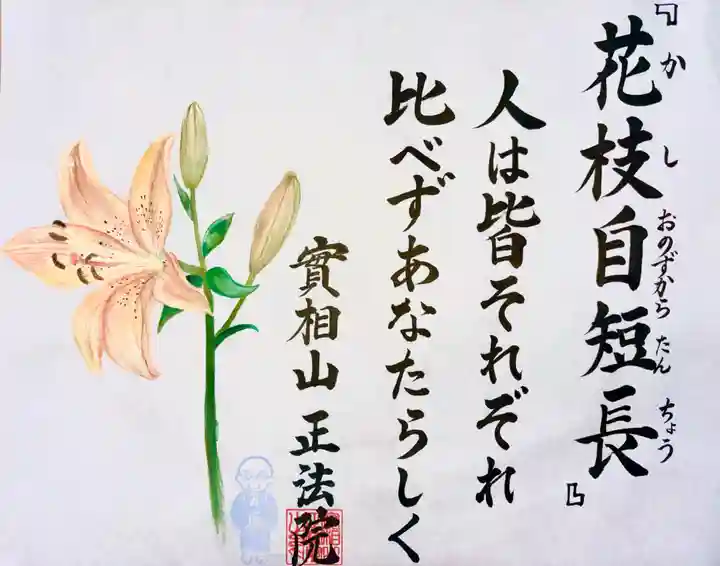 『花枝自短長』
か し おのずから たん ちょう
人は皆それぞれ
比べずあなたらしく
實相山 正法院